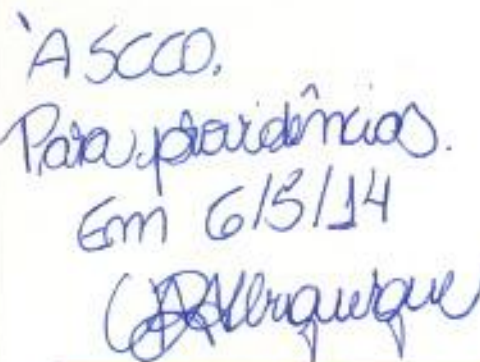 À SCCO.
Para providências.
Em 6/5/14
Albuquerque